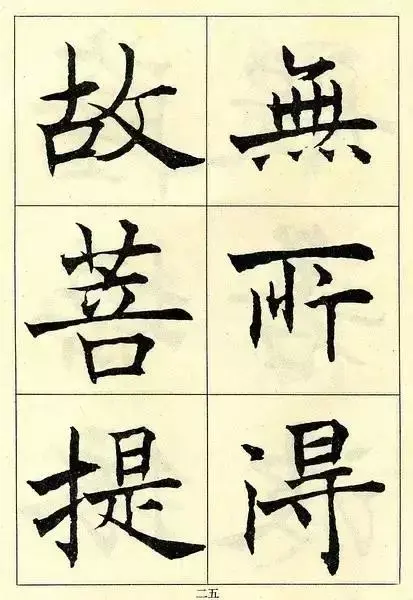 無所得
故菩提
二五